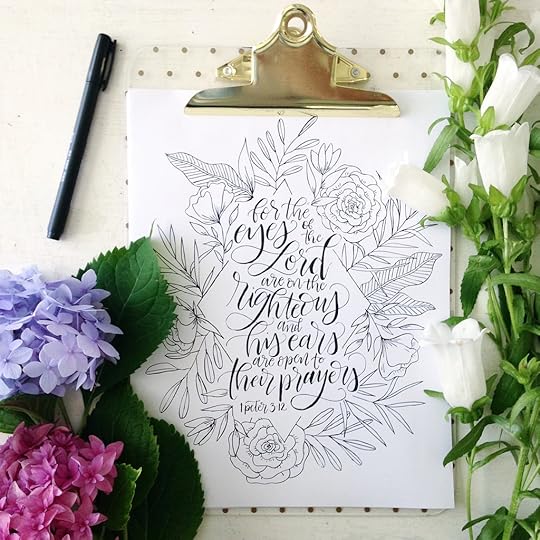 for the
eyes of the
Lord
are on the
righteous
and
his ears
are open to
their prayers
1 peter 3:12